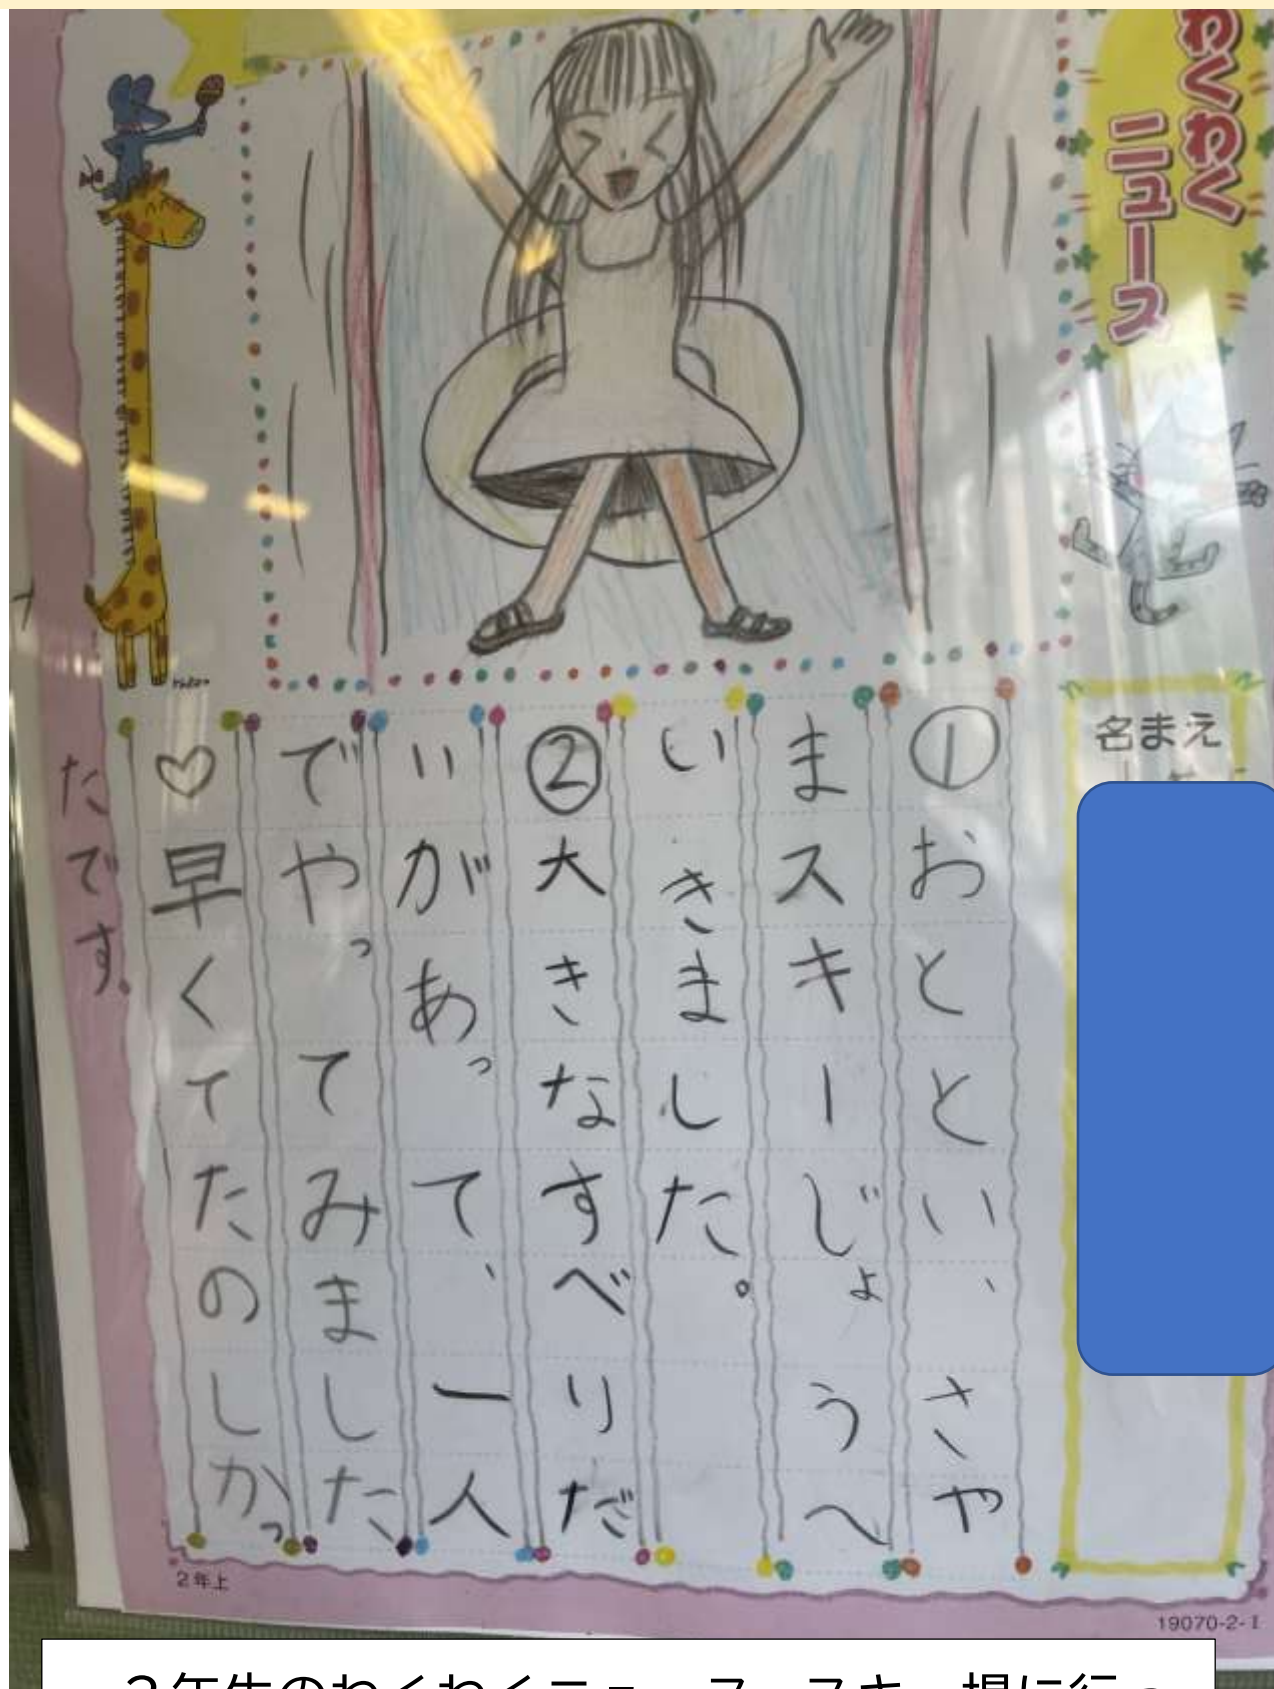 わくわく
ニュース
名まえ
①おととい、さや
まスキーじょうへ
いきました。
②大きなすべりだ
いがあって、一人
でやってみました
♡早くてたのしかっ
たです。
2年上
19070-2-1